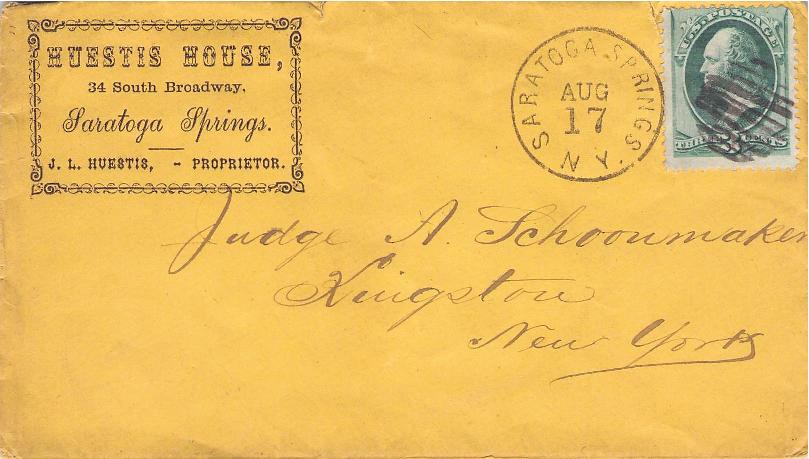 HUESTIS HOUSE,
34 South Broadway,
Saratoga Springs.
J. L. HUESTIS, - PROPRIETOR.
SARATOGA SPRINGS
AUG
17
N.Y.
U.S. POSTAGE
THREE 3 CENTS
Judge A. Schoonmaker
Kingston
New York